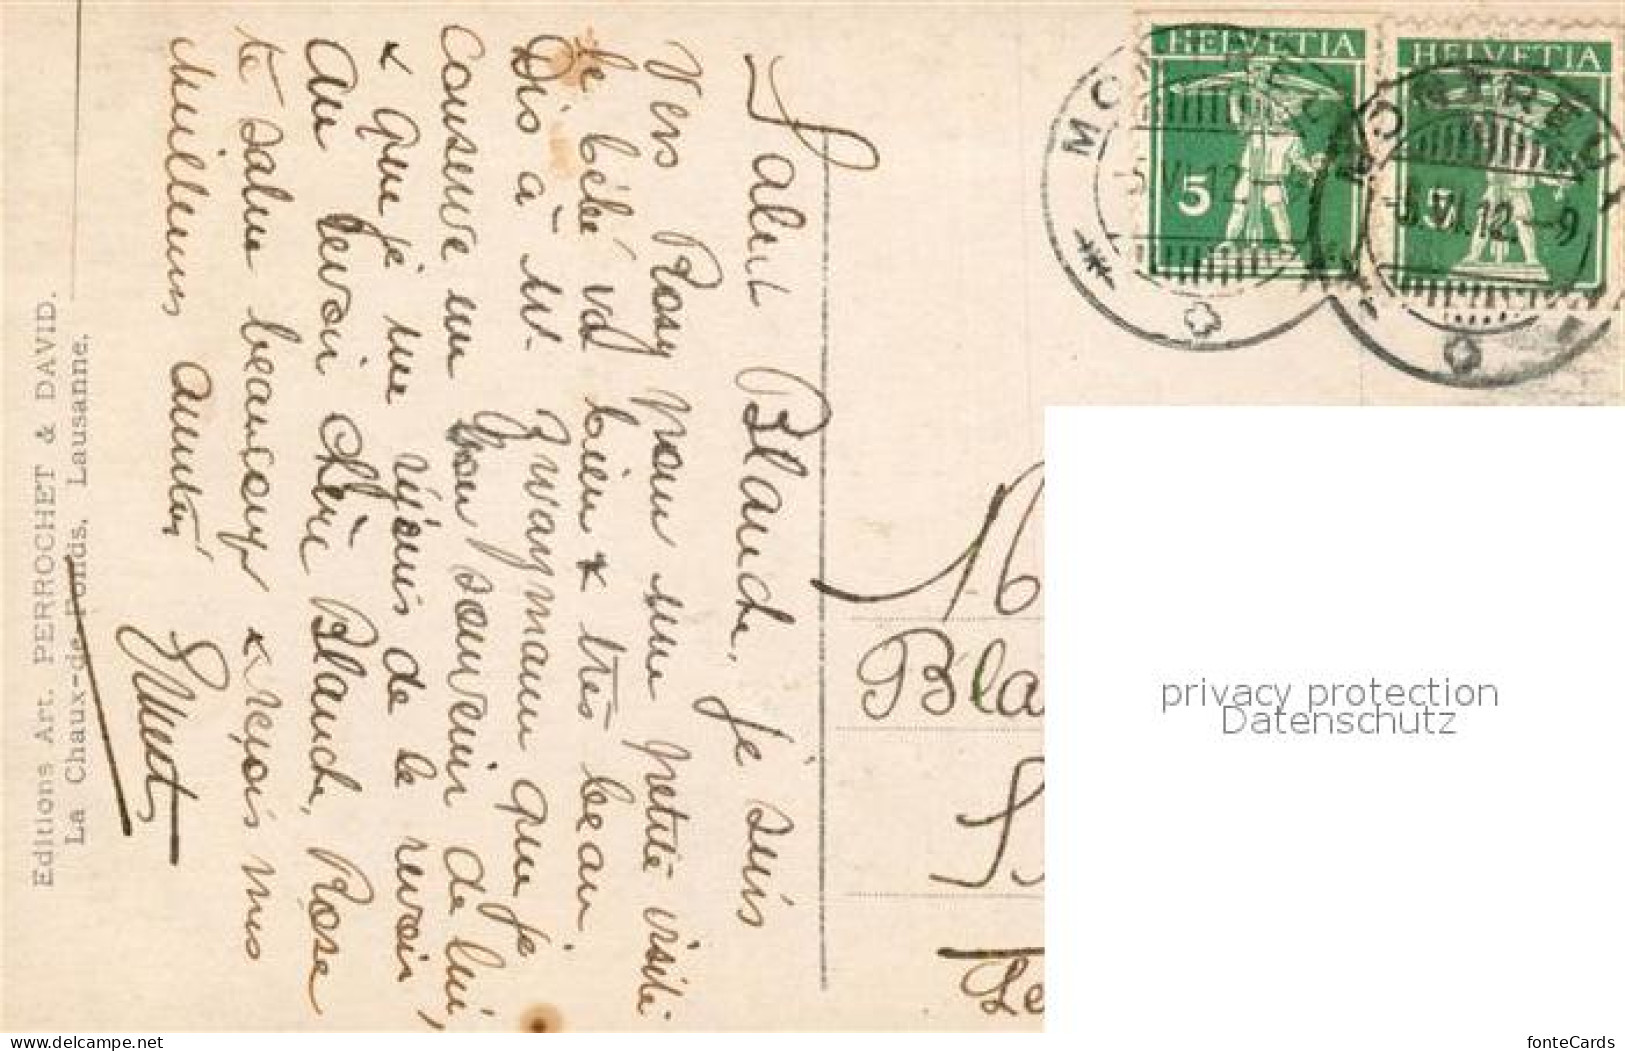 Salut Blanche, je suis
vers Rosy pour une petite visite
le bébé va bien & très beau.
Dis à Mr. Zwaymann que je
conserve un bon souvenir de lui,
& que je me réjouis de le revoir
Au revoir chère Blanche, Rose
te salue beaucoup & reçois mes
meilleures amitiés
Editions Art. PERROCHET & DAVID.
La Chaux-de-Fonds, Lausanne.
HELVETIA
5
HELVETIA
5
MONTREUX
5.VI.12
MONTREUX
-5.VI.12.-9
M
Bla
privacy protection
Datenschutz
delcampe.net
fonteCards